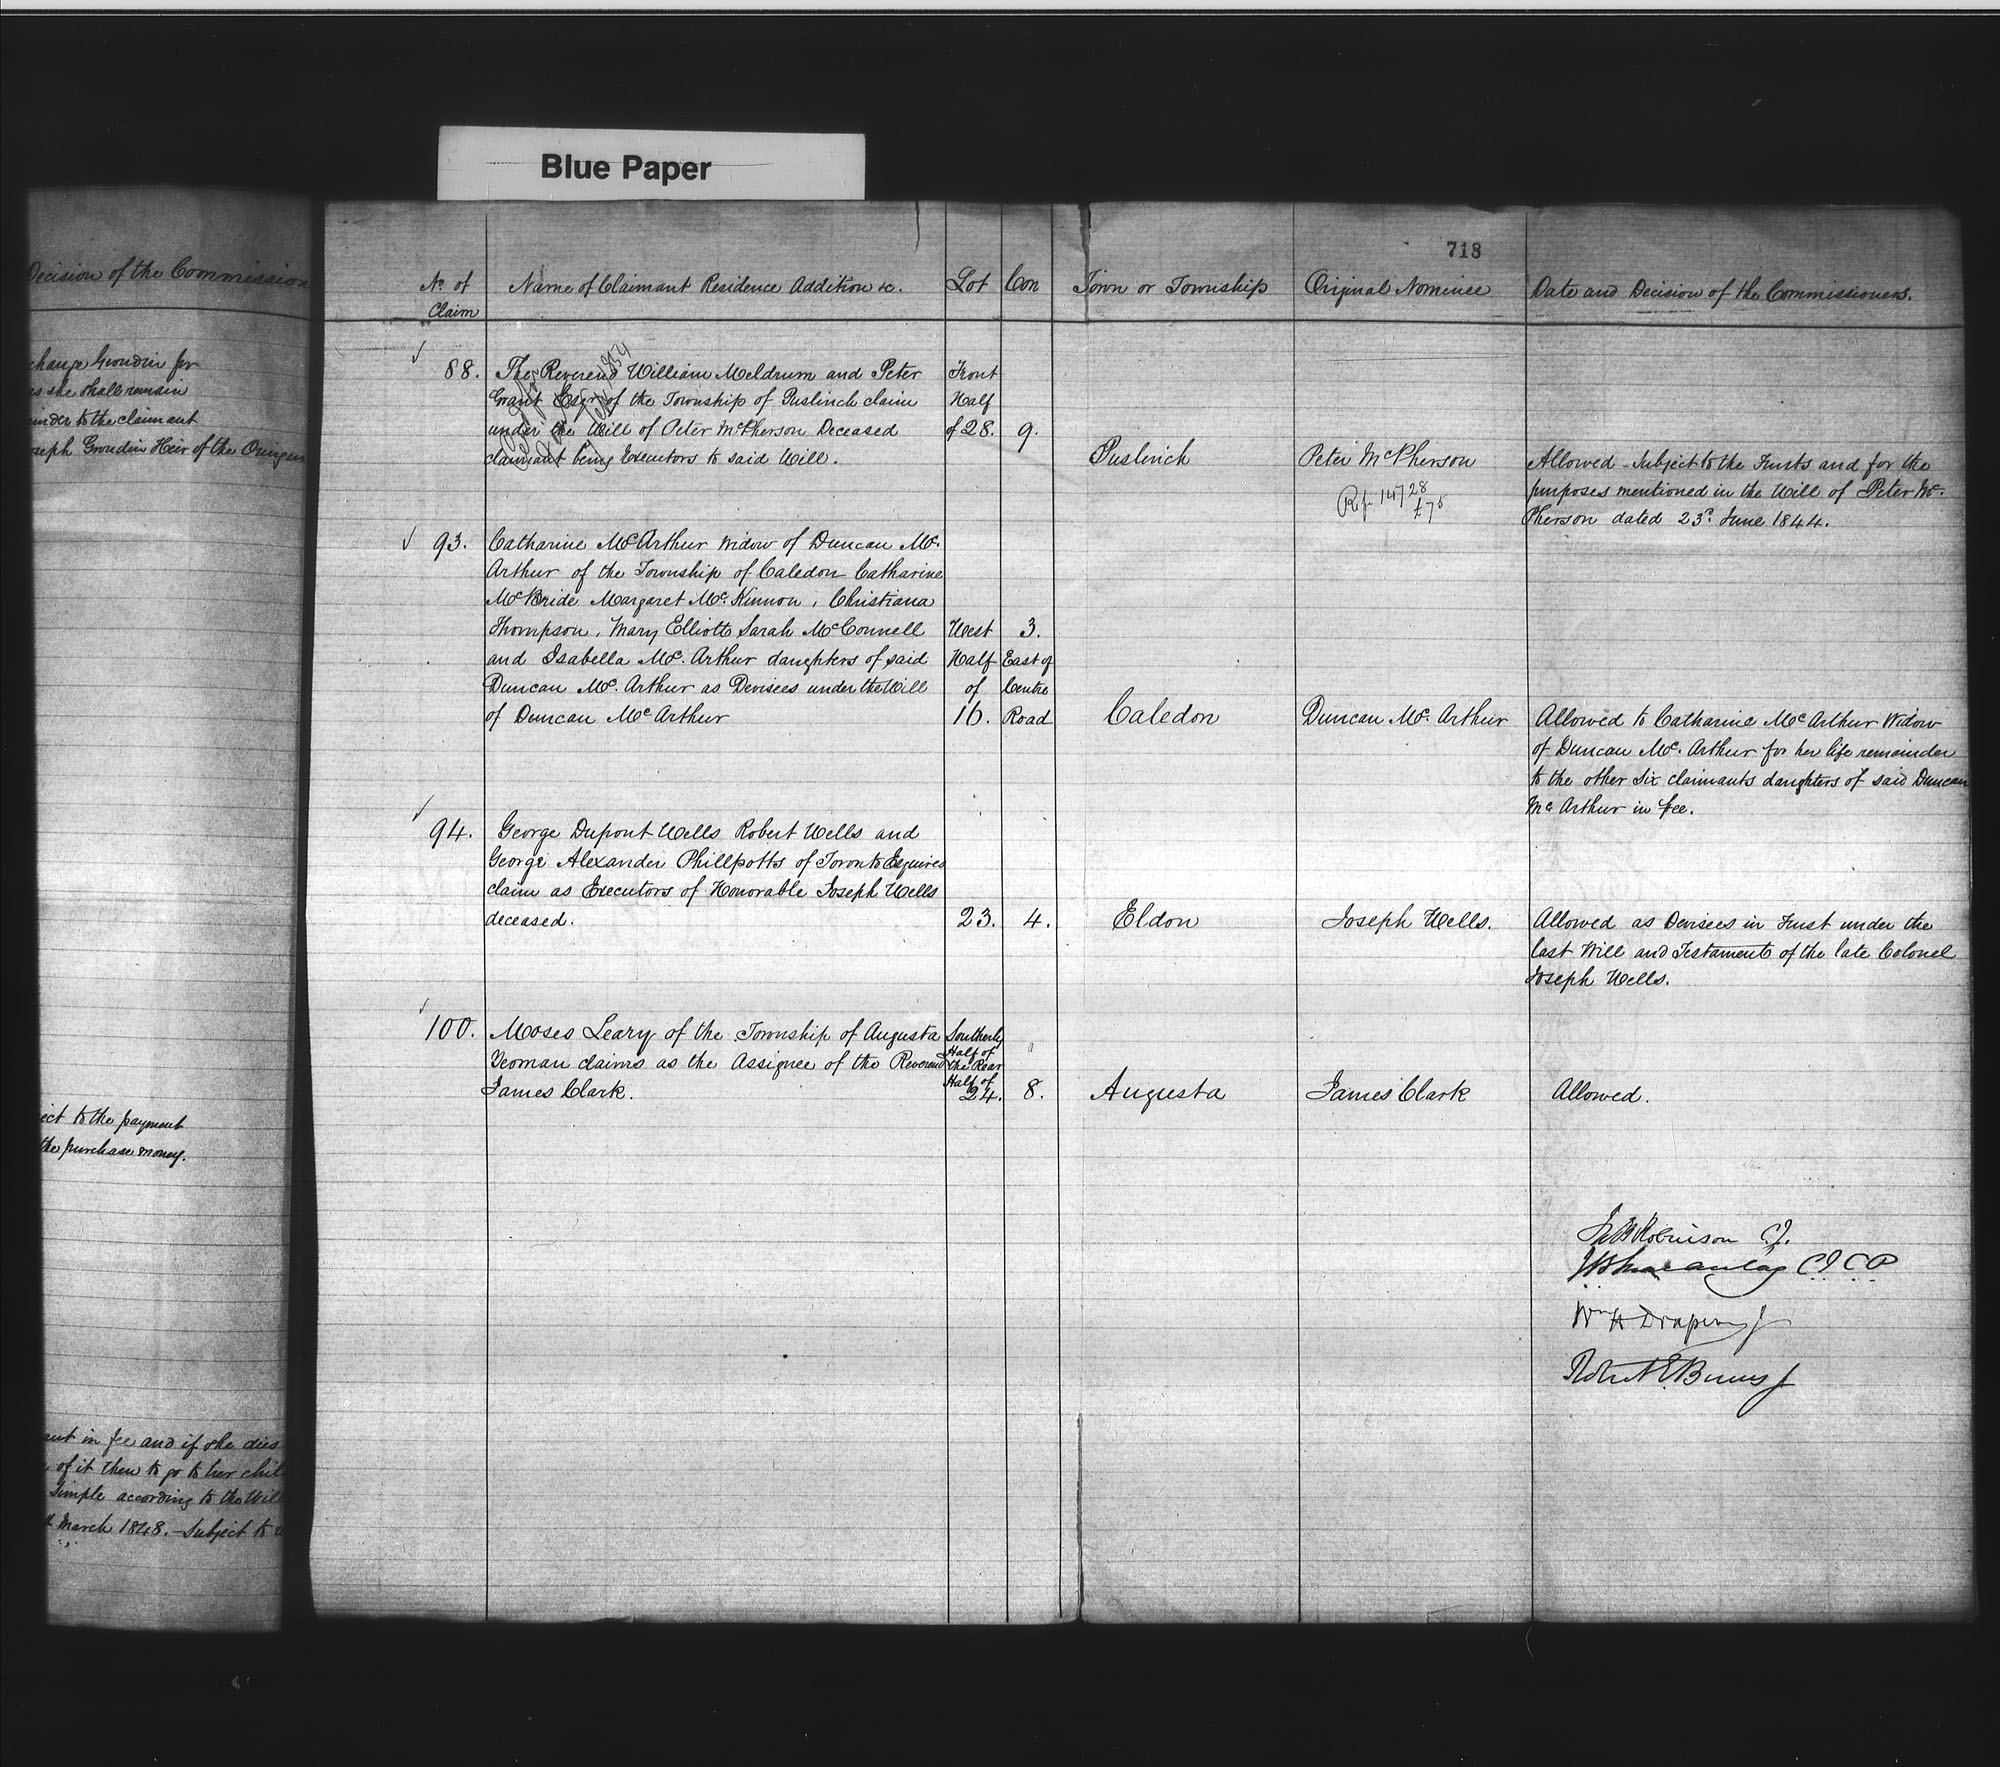 Blue Paper
Decision of the Commission
change Grondin for
as she shall remain
inder to the claimant
oseph Grondin Heir of the Origin
ect to the payment
the purchase money.
ant in fee and if she dies
of it then to go to her chil
Simple according to the Will
March 1848. Subject to
713
No. of Claim
Name of Claimant Residence Addition &c.
Lot
Con
Town or Township
Original Nominee
Date and Decision of the Commissioners.
88.
The Reverend William Meldrum and Peter
Grant Esqr of the Township of Puslinch claim
under the Will of Peter McPherson Deceased
claimant being Executors to said Will.
Front
Half
of 28.
9.
Puslinch
Peter McPherson
£75
Allowed - Subject to the Trusts and for the
purposes mentioned in the Will of Peter Mc-
Pherson dated 23d June 1844.
93.
Catharine McArthur Widow of Duncan Mc-
Arthur of the Township of Caledon Catharine
McBride Margaret McKinnon, Christiana
Thompson, Mary Elliott Sarah McConnell
and Isabella McArthur daughters of said
Duncan McArthur as Devisees under the Will
of Duncan McArthur
West
Half
of
16.
3.
East of
Centre
Road
Caledon
Duncan McArthur
Allowed to Catharine McArthur Widow
of Duncan McArthur for her life remainder
to the other six claimants daughters of said Duncan
McArthur in fee.
94.
George Dupont Wells Robert Wells and
George Alexander Phillpotts of Toronto Esquires
claim as Executors of Honorable Joseph Wells
deceased.
23.
4.
Eldon
Joseph Wells.
Allowed as Devisees in Trust under the
last Will and Testament of the late Colonel
Joseph Wells.
100.
Moses Leary of the Township of Augusta
Yeoman claims as the Assignee of the Reverend
James Clark.
Southerly
Half of
the Rear
Half of
24.
8.
Augusta
James Clark
Allowed.
Jno B Robinson C.J.
J B Macaulay C.J.C.P
Wm H Draper J
Robert E Burns J